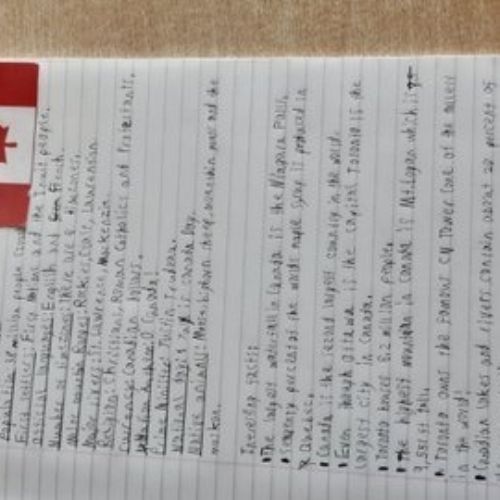 Population: 38 million people
First settlers: First Nations and the Inuit people.
official language: English and French.
Number of timezones: There are 6 timezones.
Major mountain Ranges: Rockies, Coast, Laurentian
Major rivers: St. Lawrence, Mackenzie
Religion: Christians, Roman Catholics and Protestants.
Currency: Canadian dollars.
National Anthem: O Canada!
Prime Minister: Justin Trudeau.
National days: July 1st is Canada Day.
Native animals: Moose, bighorn sheep, and the
Interesting facts:
• The largest waterfall in Canada is the Niagara Falls.
• Seventy percent of the worlds maple syrup is produced in
Quebec.
• Canada is the second largest country in the world.
• Even though Ottawa is the capital Toronto is the
largest city in Canada.
• Toronto has 6.2 million people.
• The highest mountain in Canada is Mt. Logan which is
• Toronto owns the Famous CN Tower one of the tallest
in the world!
• Canadian lakes and rivers contain about 20 percent of